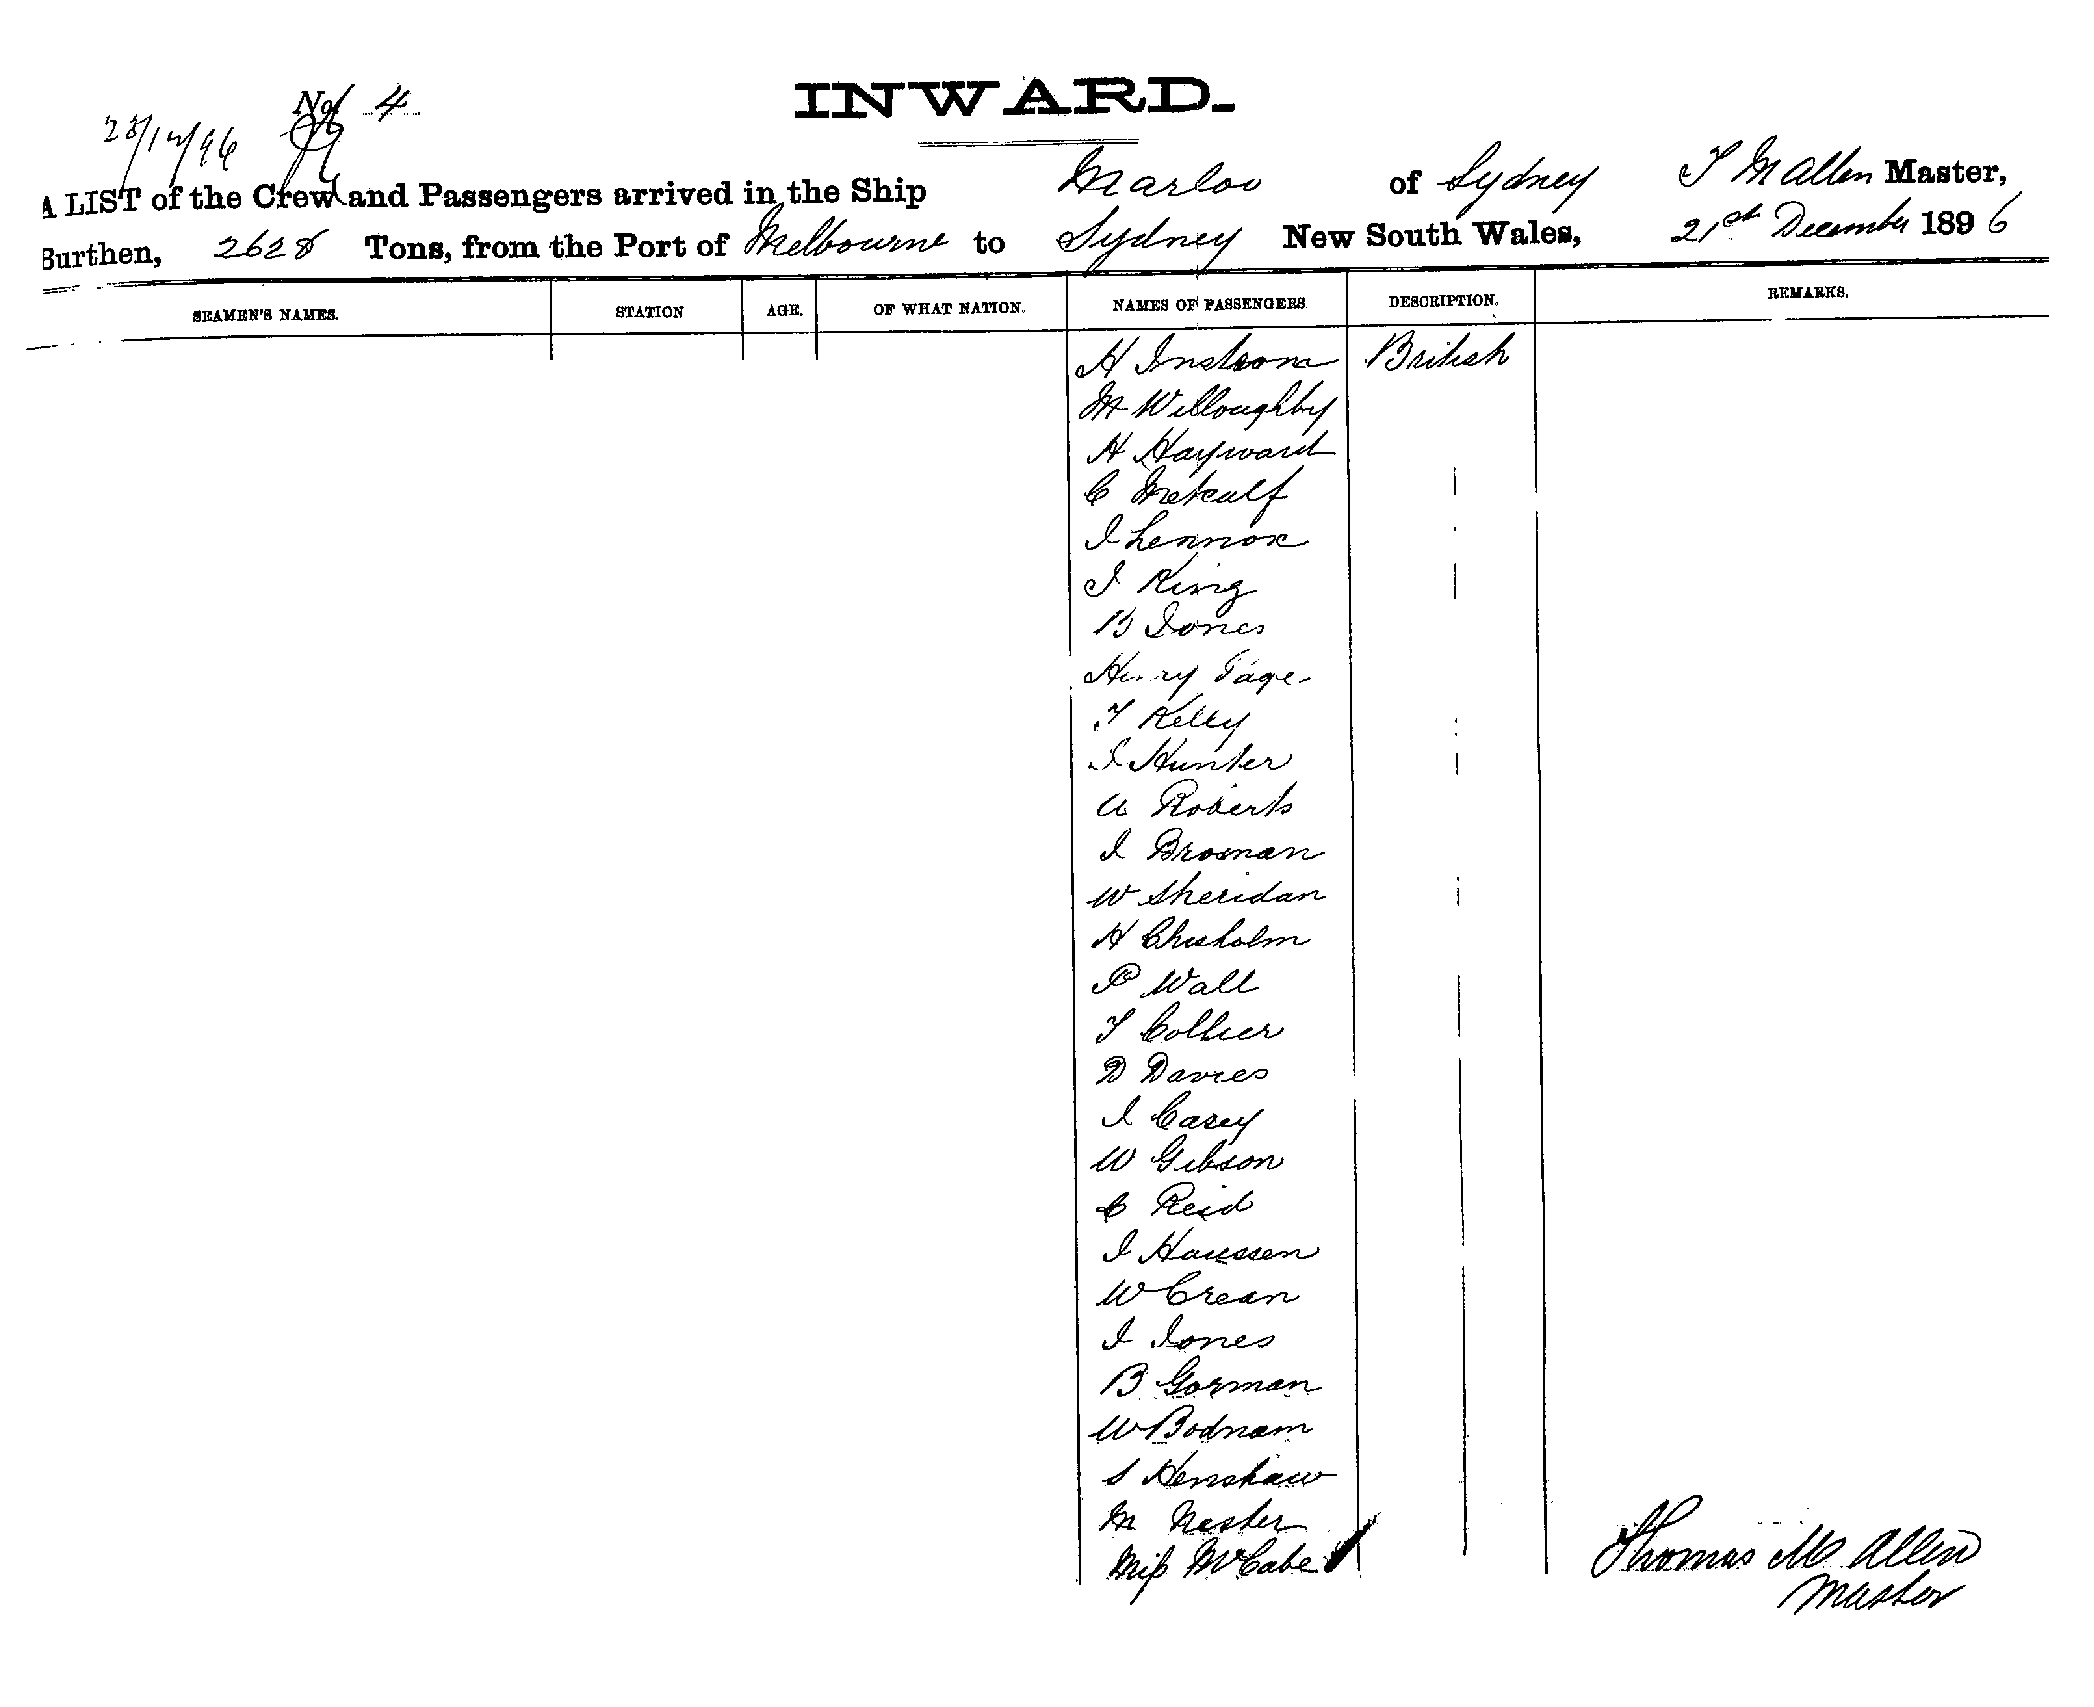 INWARD.
No 4
23/12/96
A LIST of the Crew and Passengers arrived in the Ship Marloo of Sydney T M Allen Master,
Burthen, 2628 Tons, from the Port of Melbourne to Sydney New South Wales, 21st December 1896
SEAMEN'S NAMES. STATION AGE. OF WHAT NATION. NAMES OF PASSENGERS DESCRIPTION. REMARKS.
H Instrom British
M Willoughby
H Hayward
C Metcalf
J Lennox
J King
B Jones
Henry Page
T Kelly
J Hunter
A Roberts
J Brosnan
W Sheridan
H Chisholm
P Wall
T Collier
D Davies
J Casey
W Gibson
C Reid
J Haussen
W Crean
J Jones
B Gorman
W Bodnam
S Henshaw
M Nester
Miss McCabe
Thomas M Allen
Master